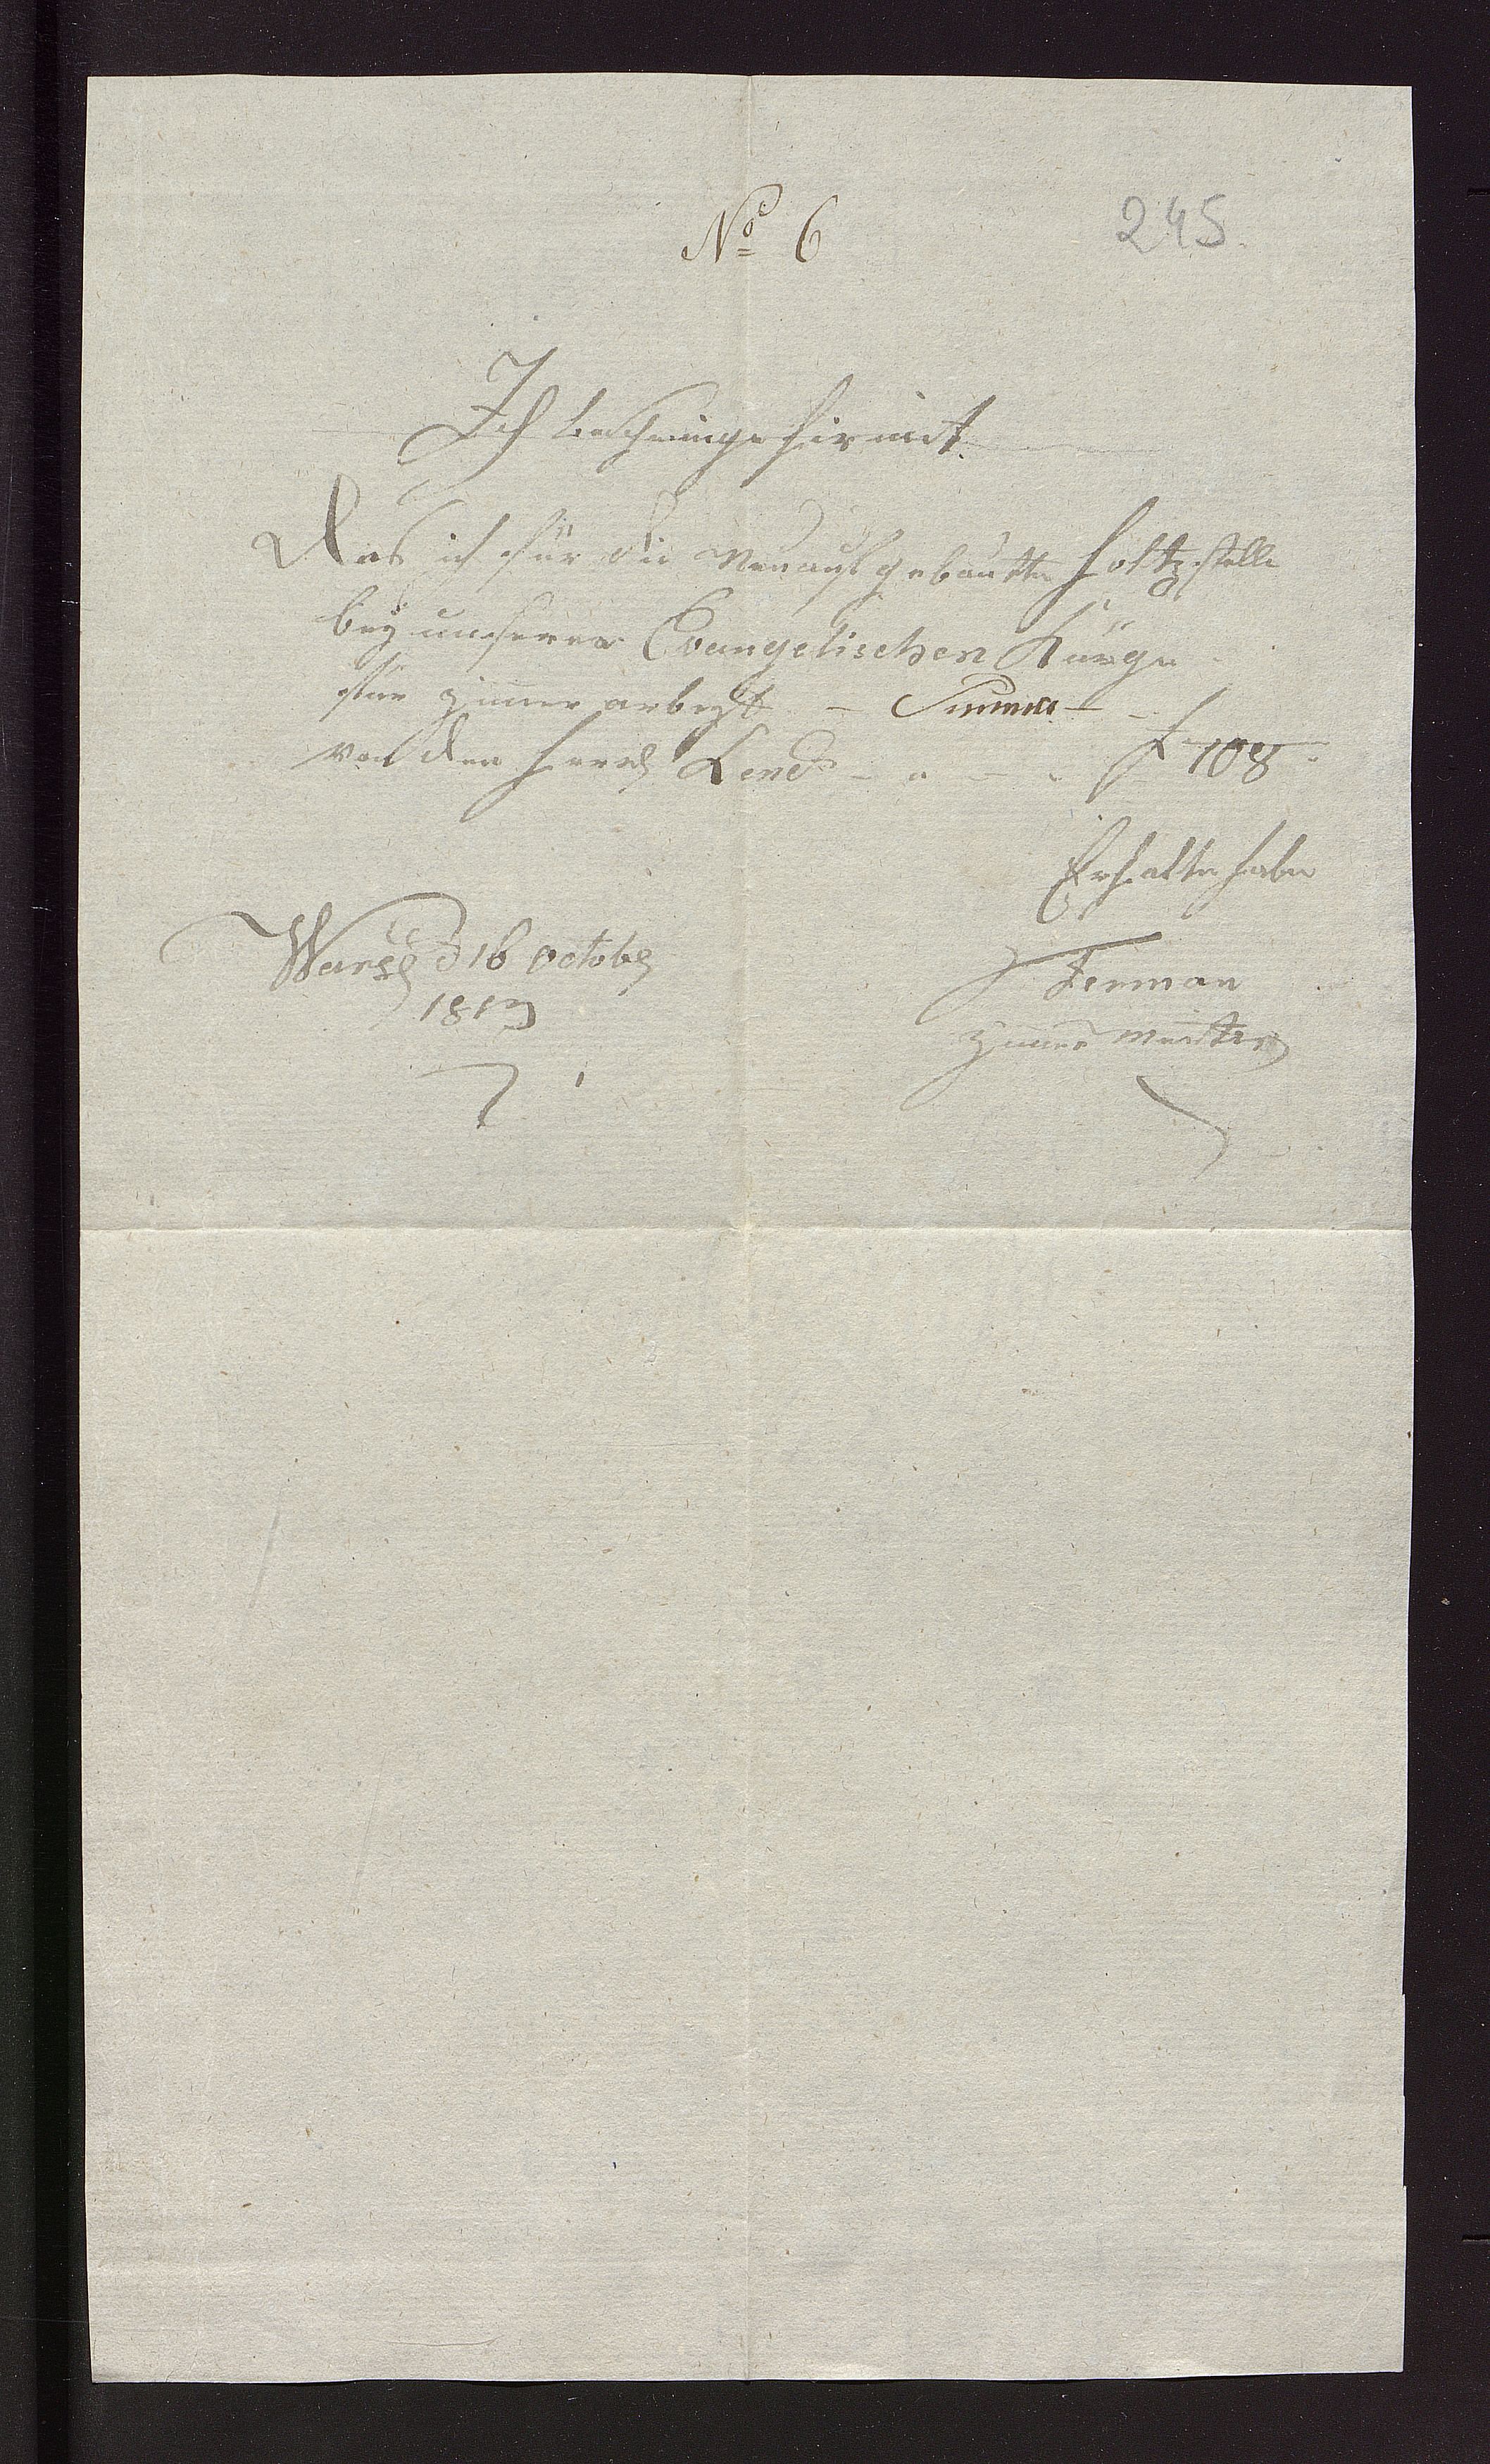 No 6
245.
Ich bescheinge hirmit
Das ich für die Neuaufgebautte Holtzstelle
bey unserer Evangelischen Kürge
für zimer arbeyt - Summa -
von den Herrn Lenck - - - f 108
Erhalten habe
Warsch d 16 octobr
1813
Ferman
Zimer meister